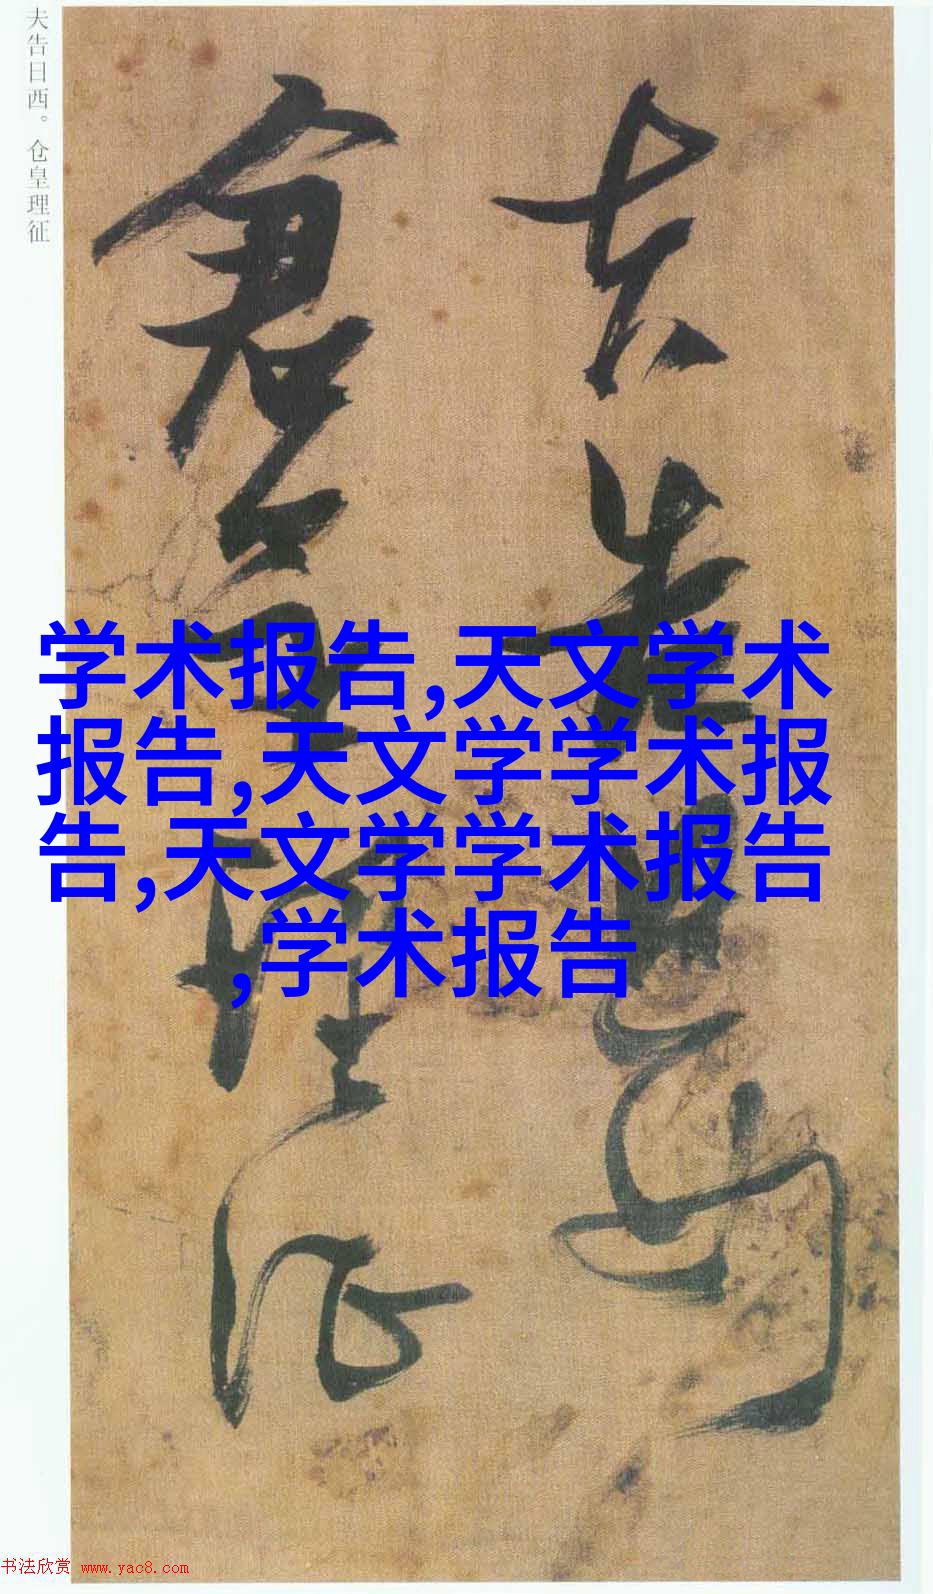 夫告日西。仓皇理征
夫告日西
倉皇理征
学术报告,天文学术
报告,天文学学术报
告,天文学学术报告
,学术报告
书法欣赏 www.yac8.com